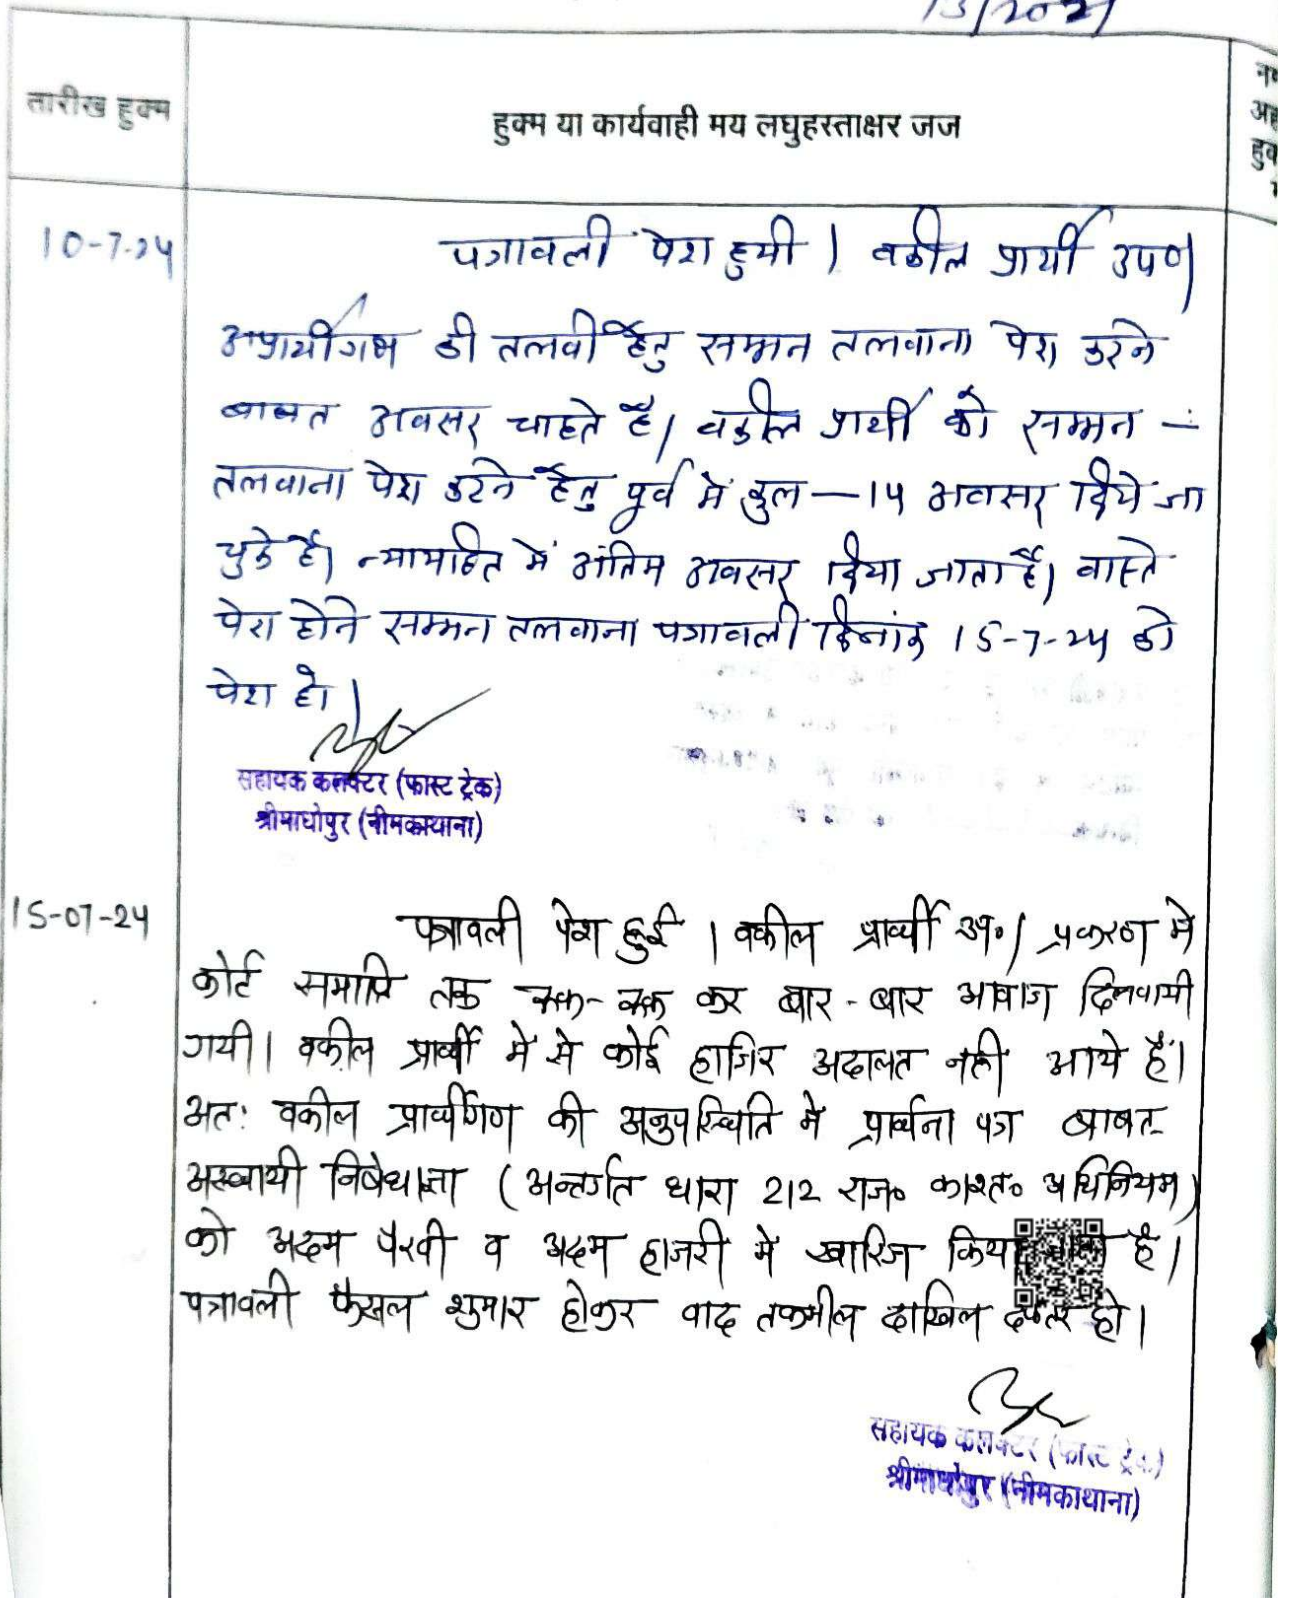 13/2021
तारीख हुक्म
हुक्म या कार्यवाही मय लघुहस्ताक्षर जज
10-7-24
पत्रावली पेश हुयी। वकील प्रार्थी उप०।
अप्रार्थीगण की तलबी हेतु सम्मन तलवाना पेश करने
बाबत अवसर चाहते है। वकील प्रार्थी को सम्मन -
तलवाना पेश करने हेतु पूर्व में कुल - 14 अवसर दिये जा
चुके है। न्यायहित में अंतिम अवसर दिया जाता है। वास्ते
पेश होने सम्मन तलवाना पत्रावली दिनांक 15-7-24 को
पेश हो।
सहायक कलक्टर (फास्ट ट्रेक)
श्रीमाधोपुर (नीमकाथाना)
15-07-24
पत्रावली पेश हुई। वकील प्रार्थी उप०। प्रकरण मे
कोर्ट समाप्ति तक रूक-रूक कर बार-बार आवाज दिलवायी
गयी। वकील प्रार्थी में से कोई हाजिर अदालत नही आये हैं।
अतः वकील प्रार्थीगण की अनुपस्थिति मे प्रार्थना पत्र बाबत
अस्थायी निषेधाज्ञा (अन्तर्गत धारा 212 राज० काश्त० अधिनियम)
को अदम पैरवी व अदम हाजरी मे खारिज किया है।
पत्रावली फैसल शुमार होकर वाद तकमील दाखिल दफ्तर हो।
सहायक कलक्टर (फास्ट ट्रेक)
श्रीमाधोपुर (नीमकाथाना)